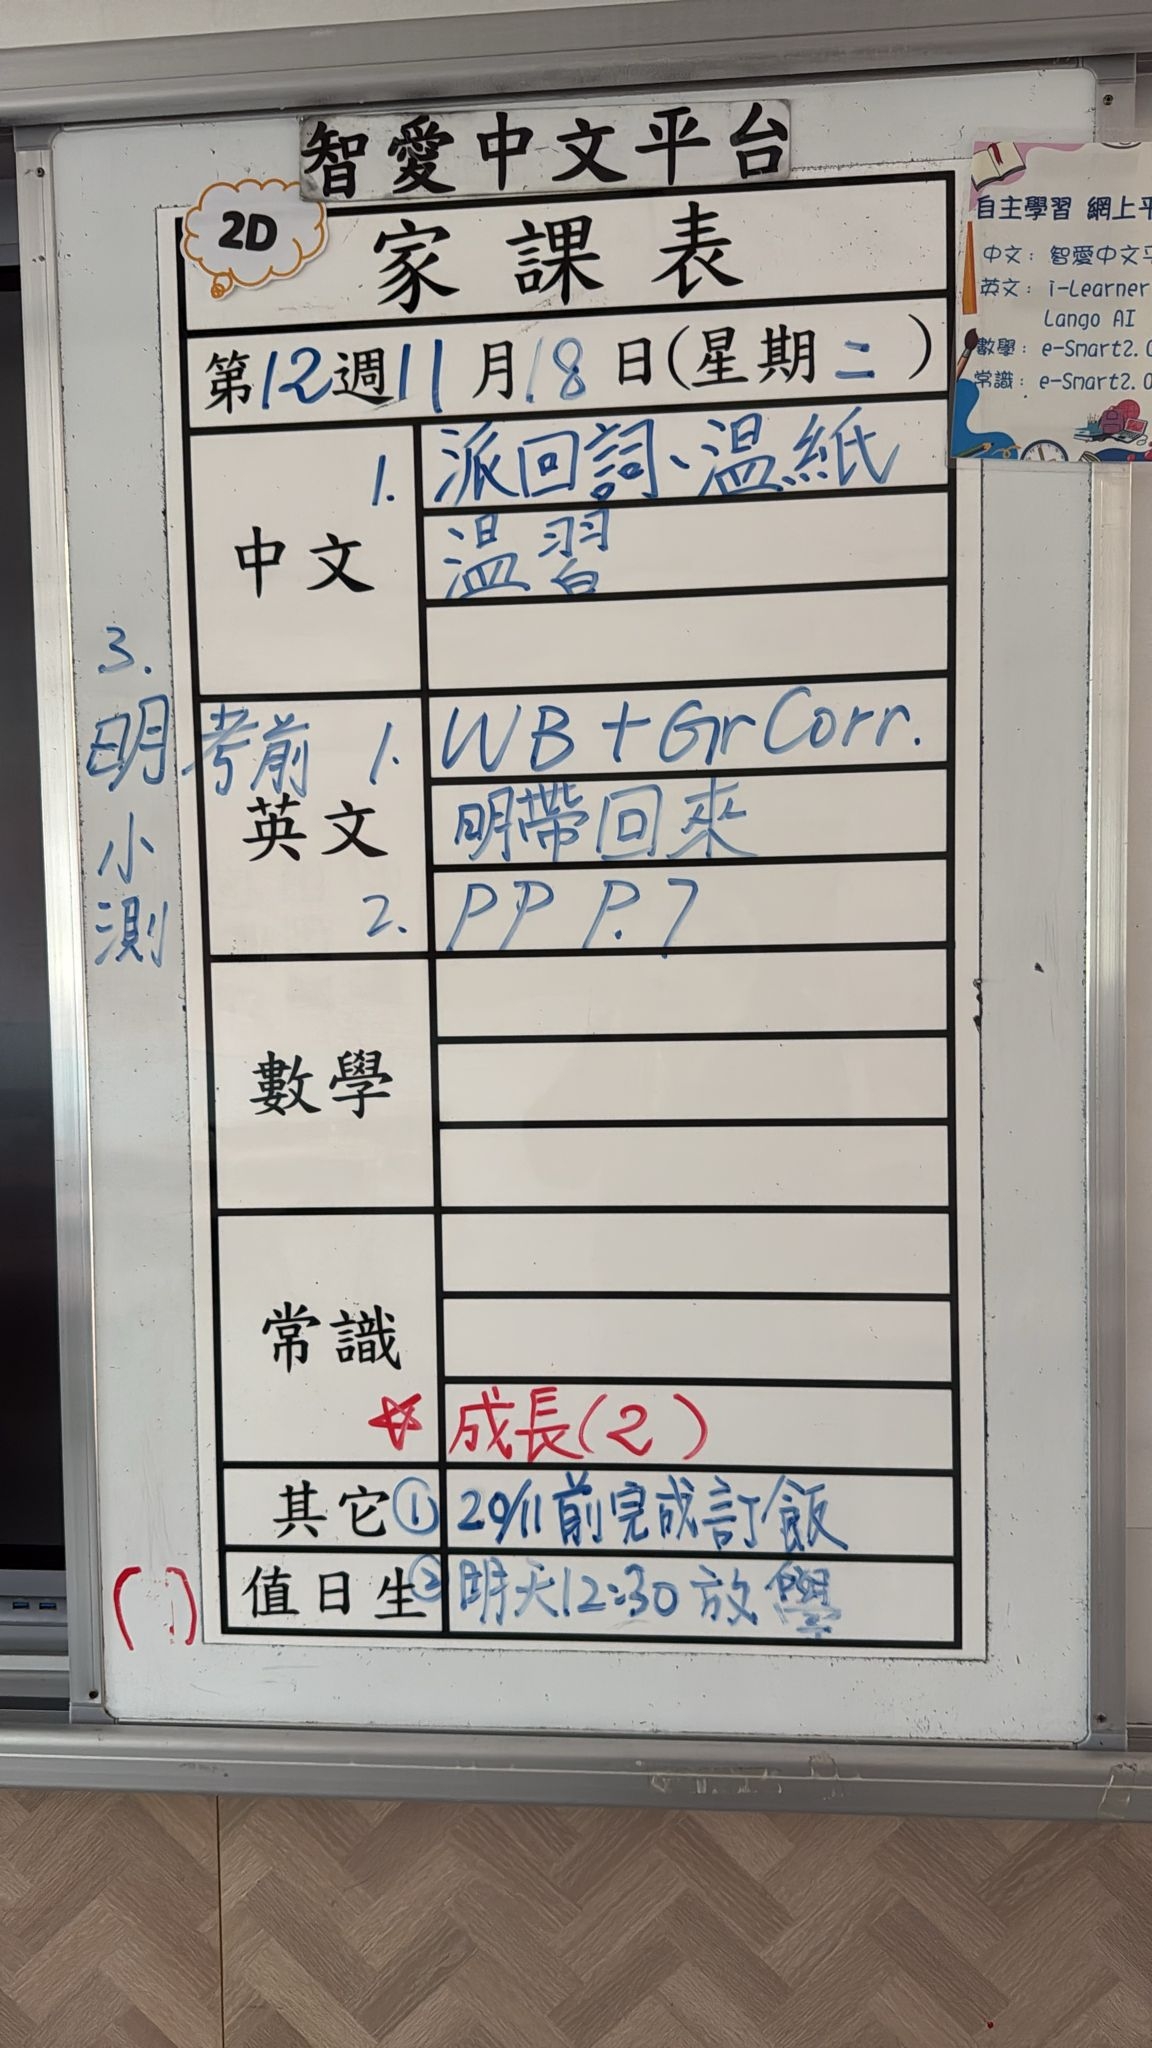 智愛中文平台
2D
家課表
第12週11月18日(星期二)
中文
1. 派回詞、溫紙
溫習
英文
考前 1. WB + Gr Corr.
明帶回來
2. PP P.7
3. 明小測
數學
常識
☆ 成長(2)
其它 ① 29/11前完成訂飯
值日生 ② 明天12:30放學
( )
自主學習 網上平
中文：智愛中文平
英文：i-Learner
Lango AI
數學：e-Smart2.0
常識：e-Smart2.0